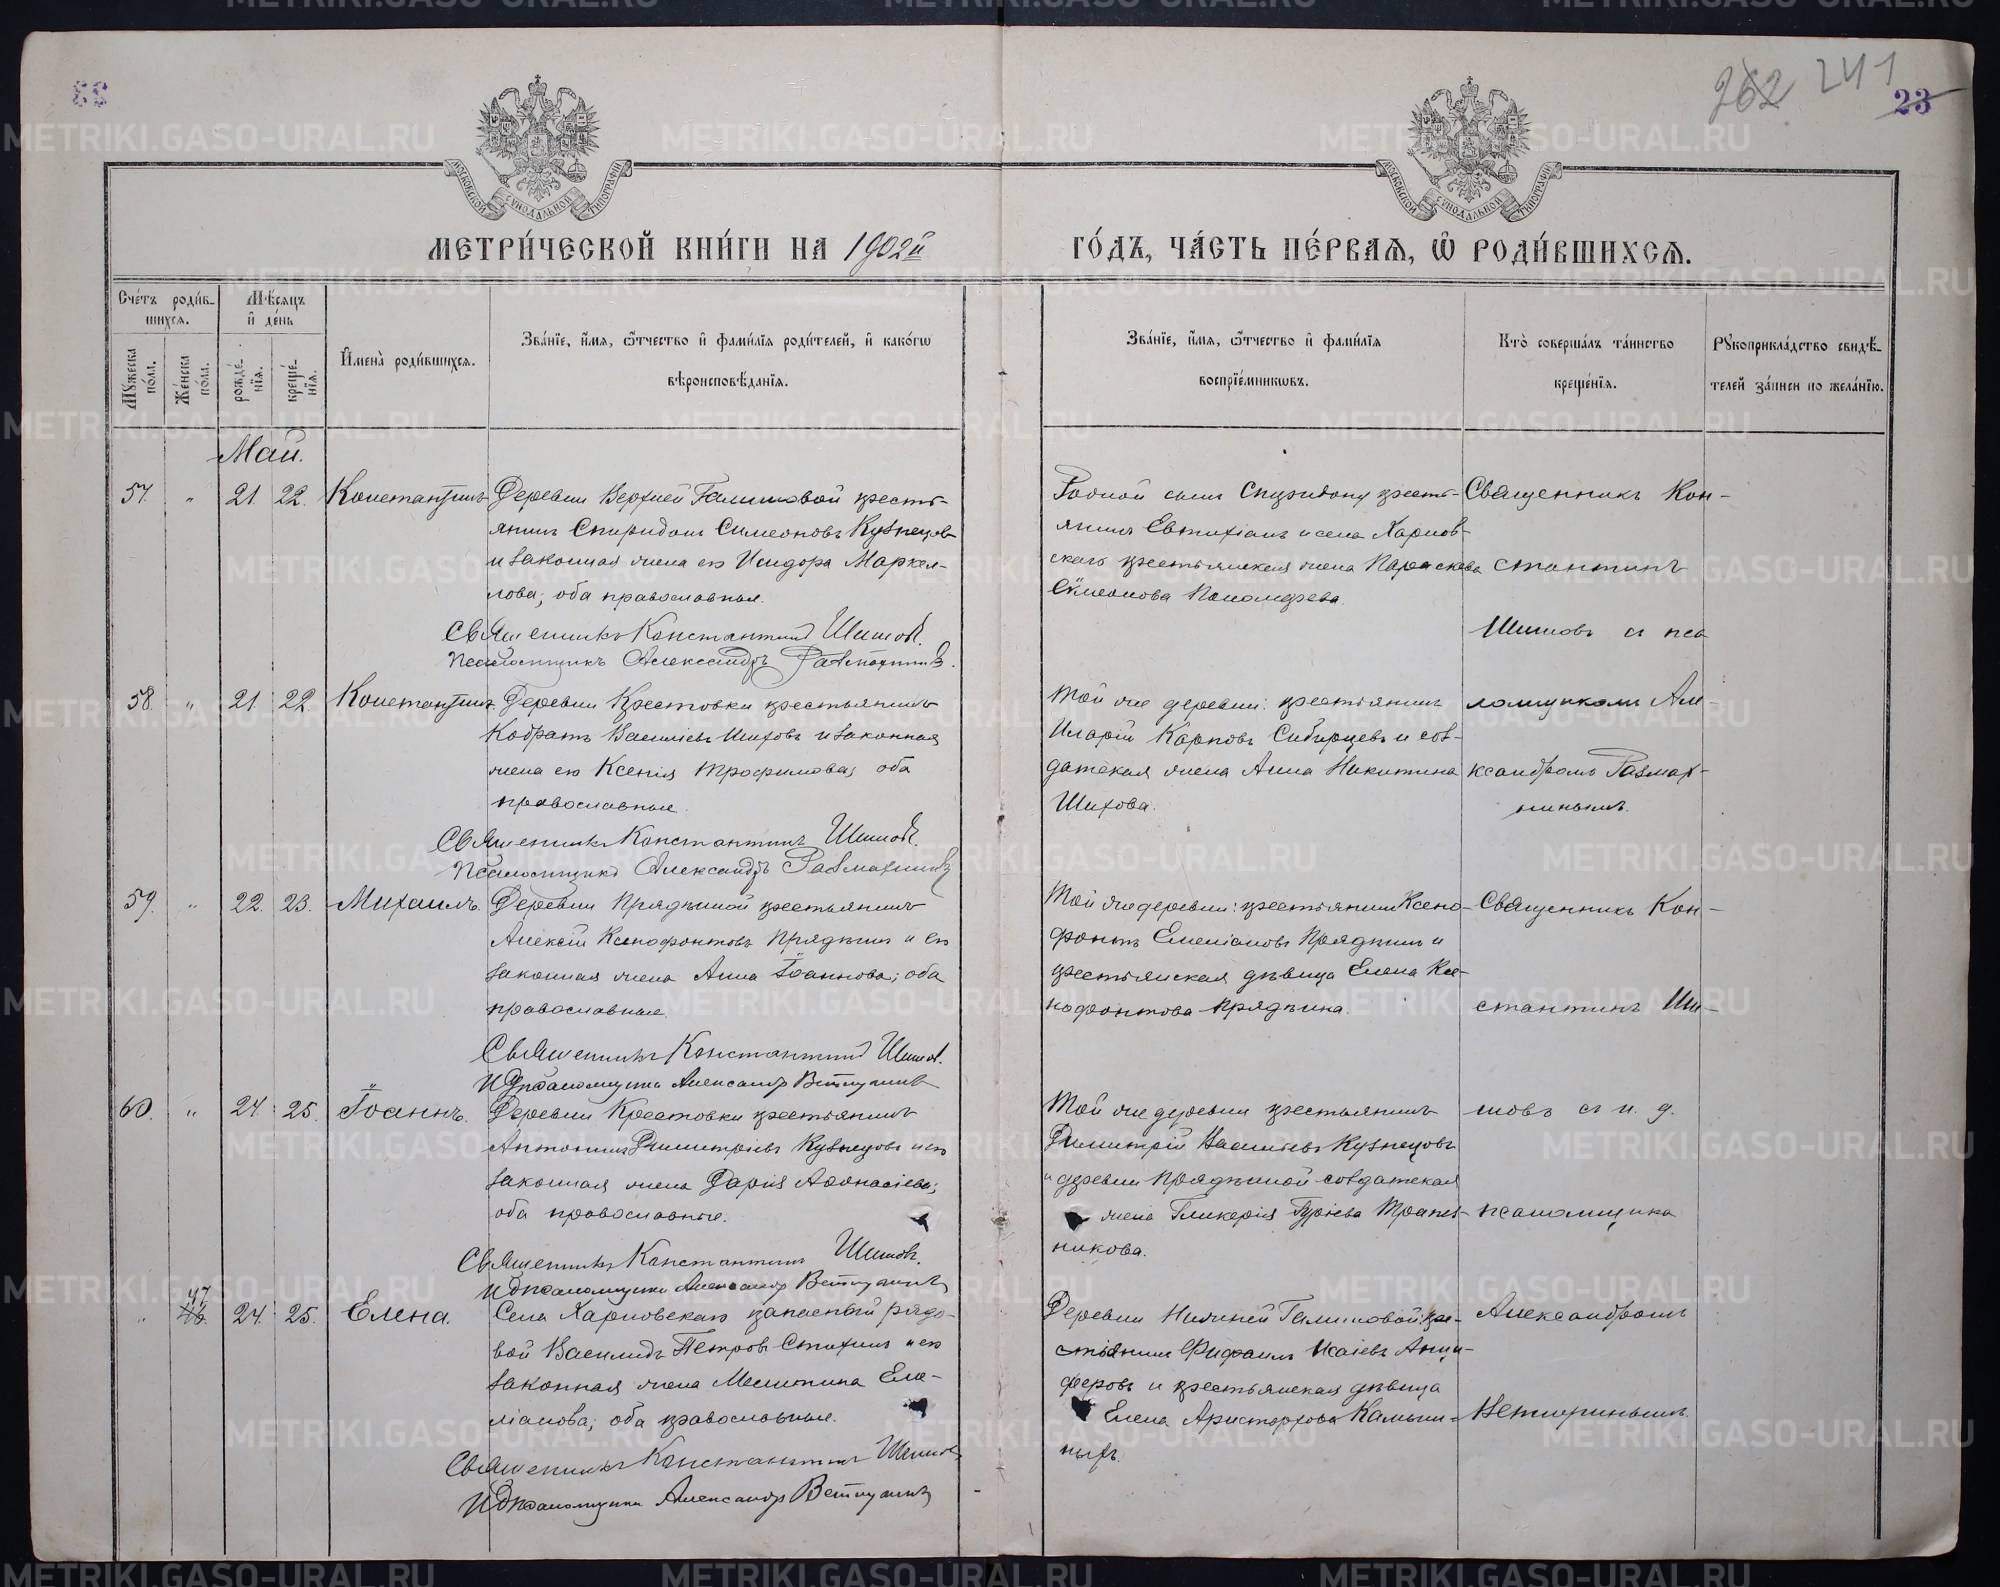 262 241
23
МЕТРИ́ЧЕСКОЙ КНИ́ГИ НА 1902й ГО́ДЪ, ЧА́СТЬ ПЕ́РВАЯ, Ѡ҆ РОДИ́ВШИХСЯ.
Сче́тъ роди́в-
шихся.
Мѣ́сяцъ
и҆ де́нь
Мꙋжеска по́ла.
Же́нска по́ла.
рожде́-
нїя.
креще́-
нїя.
И҆мена̀ роди́вшихся.
Зва́нїе, и҆́мя, ѻ҆́тчество и҆ фами́лїя роди́телей, и҆ како́гѡ
вѣроисповѣ́данїя.
Зва́нїе, и҆́мя, ѻ҆́тчество и҆ фами́лїя
воспрїе́мникѡвъ.
Кто̀ соверша́лъ та́инство
креще́нїя.
Рꙋкоприкла́дство свидѣ́-
телей за́писи по жела́нїю.
Май.
57. " 21. 22. Константинъ
Деревни Верхней Галишовой кресть-
янинъ Спиридонъ Симеоновъ Кузнецовъ
и законная жена его Исидора Маркел-
лова; оба православные.
Священникъ Константинъ Шишовъ.
Псаломщикъ Александръ Размахнинъ.
Родной сынъ Спиридону кресть-
янинъ Евтихіанъ и села Харлов-
скаго крестьянская жена Параскева
Симеонова Пономарева.
Священникъ Кон-
стантинъ
Шишовъ съ пса
58. " 21. 22. Константинъ.
Деревни Крестовки крестьянинъ
Кодратъ Василіевъ Шиховъ и законная
жена его Ксенія Трофимова; оба
православные.
Священникъ Константинъ Шишовъ.
Псаломщикъ Александръ Размахнинъ
Той же деревни: крестьянинъ
Иларій Карповъ Сибирцевъ и сол-
датская жена Анна Никитина
Шихова.
ломщикомъ Але-
ксандромъ Размах-
нинымъ.
59. " 22. 23. Михаилъ.
Деревни Прядѣиной крестьянинъ
Алексій Ксенофонтовъ Прядѣинъ и его
законная жена Анна Іоаннова; оба
православные.
Священникъ Константинъ Шишовъ.
И.Д. псаломщика Александр
Той же деревни: крестьянинъ Ксено-
фонтъ Емеліановъ Прядѣинъ и
крестьянская дѣвица Елена Ксе-
нофонтова Прядѣина.
Священникъ Кон-
стантинъ Ши-
60. " 24. 25. Іоаннъ.
Деревни Крестовки крестьянинъ
Антонинъ Димитріевъ Кузнецовъ и его
законная жена Дарія Аѳонасіева;
оба православные.
Священникъ Константинъ Шишовъ.
И.Д. псаломщика Александр
Той же деревни крестьянинъ
Димитрій Василіевъ Кузнецовъ
и деревни Прядѣиной солдатская
жена Гликерія Гуріева Трапез-
никова.
шовъ съ и. д.
псаломщика
" 47 24. 25. Елена.
Села Харловскаго запасный рядо-
вой Василидъ Петровъ Стихинъ и его
законная жена Мелитина Еме-
ліанова; оба православные.
Священникъ Константинъ Шишовъ
И.Д. псаломщика Александр
Деревни Нижней Галишовой: кре-
стьянинъ Исаіевъ Анци-
феровъ и крестьянская дѣвица
Елена Аристархова Камыши-
ныхъ.
Александромъ
METRIKI.GASO-URAL.RU